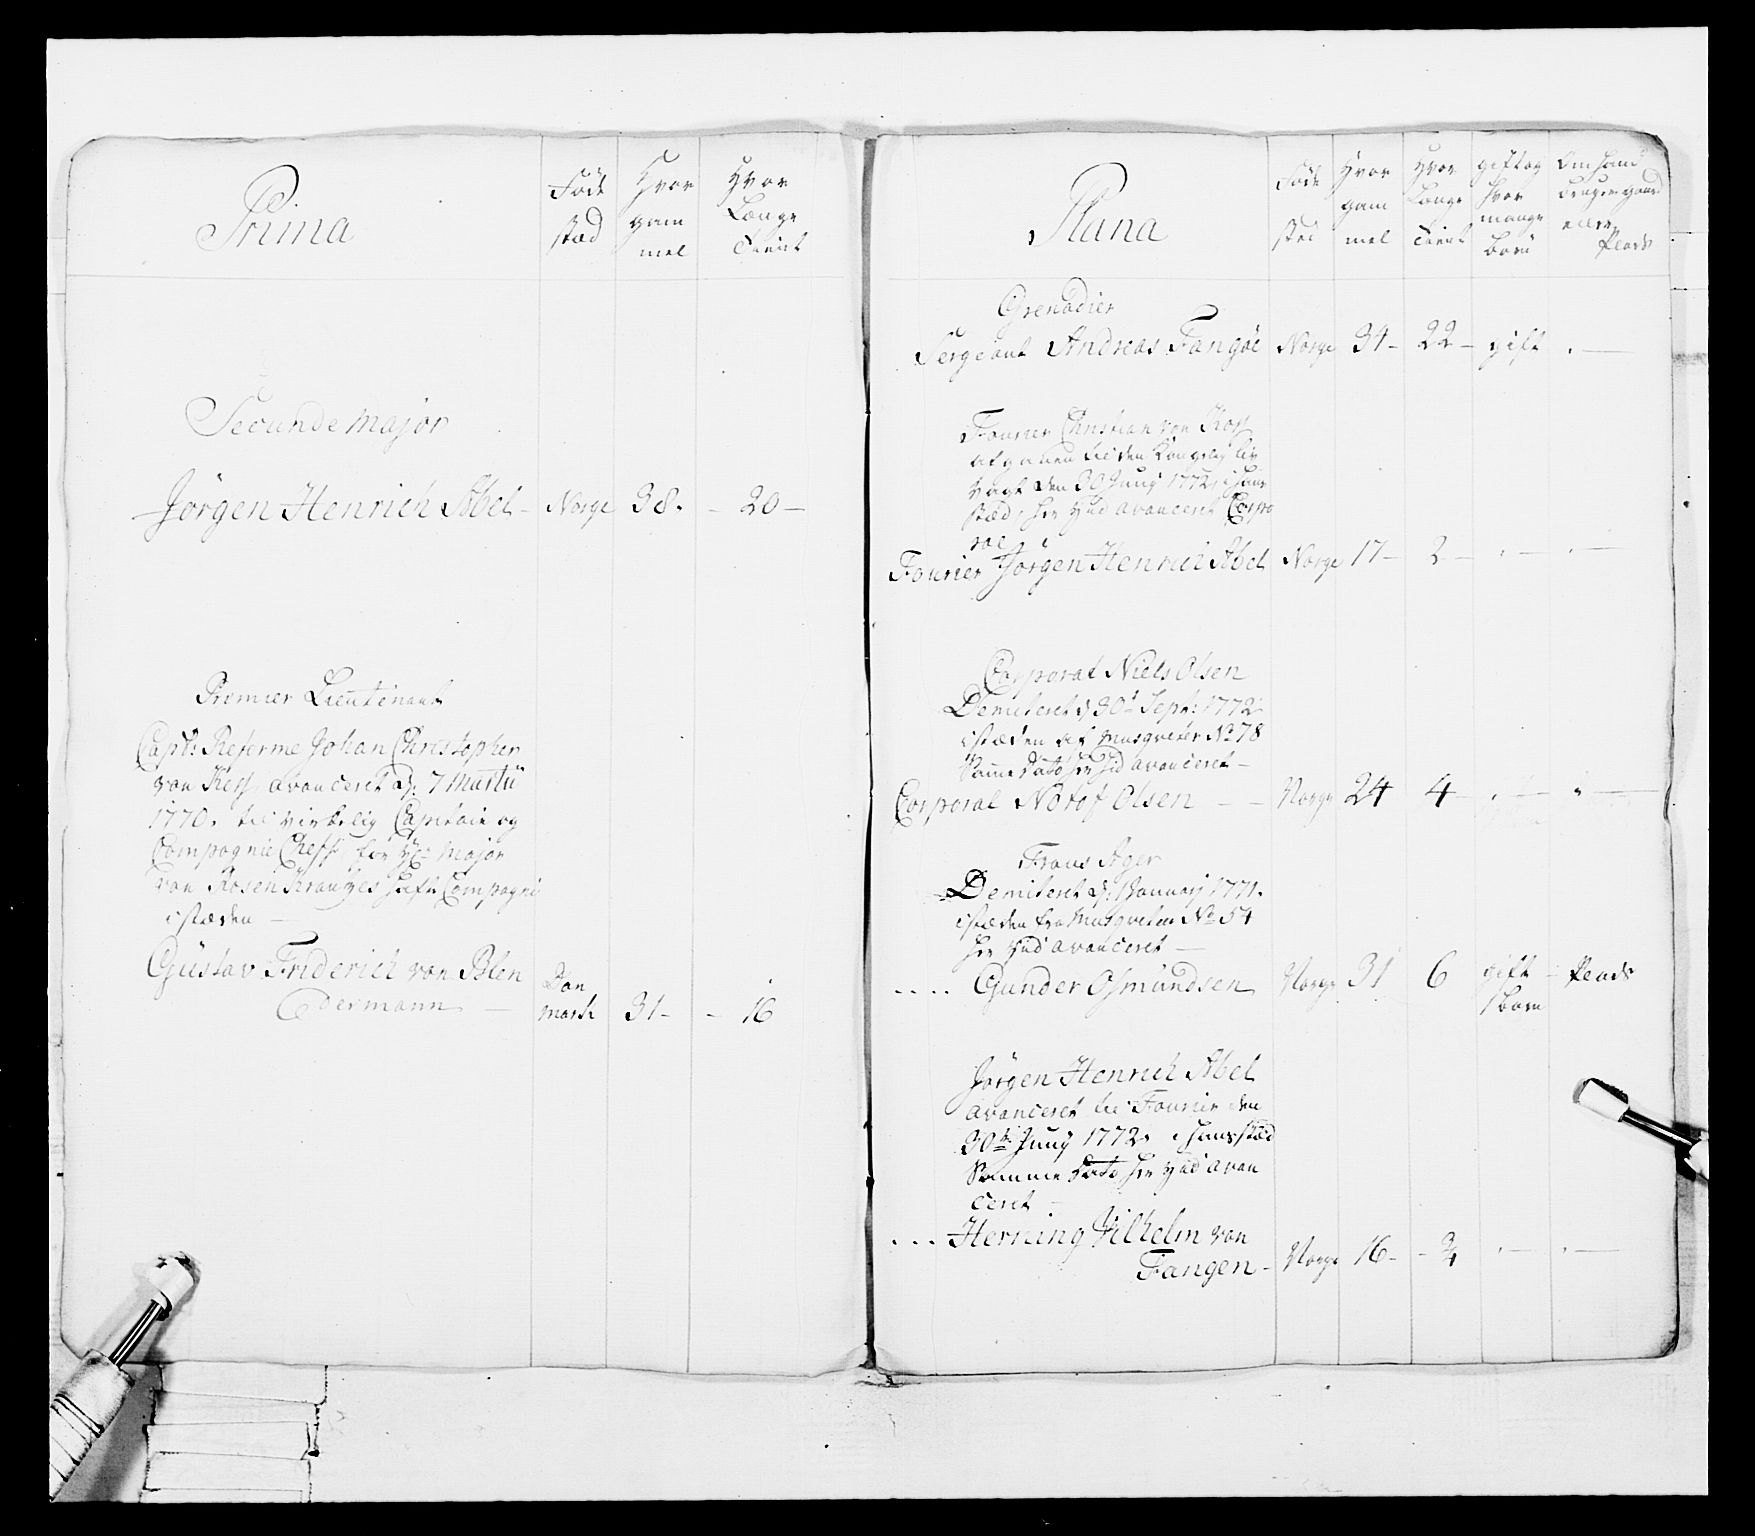 Prima
Føde
stæd
Hvor
gam
mel
Hvor
Længe
Tient
Secunde major
Jørgen Henrich Abel - Norge 38. - 20 -
Premier Lieutenant
Capt: Reforme Johan Christopher
von avanceret d: 7 Martii
1770. til virkelig Capitain og
Compagnie Cheff, for Major
von Rosen Krantzes hafte Compagni
i stæden -
Gustav Friderich von Blen
Edermann -
Dan
mark 31 - - 16
Plana
Føde
sted
Hvor
gam
mel
Hvor
Længe
Tient
gift og
hvor
mange
børn
Om hand
bruger gaard
eller
Plads
Grenadier
Sergeant Andreas Fangøe Norge 34 - 22 - gift . -
Fourier Christian von
afgaaen til den Kongelig Liv
vagt den 30 Juny 1772, i hans
stæd, her hid avanceret Corpo
ral
Fourier Jørgen Henrich Abel Norge 17 - 2 - . - . -
Corporal Niels Olsen
Demiteret d 30t Sept: 1772
i stæden af Musqveter No 78
Samme dato her hid avanceret -
Corporal Olsen - - Norge 24 4 . - . -
Frans Ager
Demiteret d: Januarij 1771.
i stæden fra Musqveteer No 54
her hid avanceret -
.... Gunder Osmundsen Norge 31 6 gift - Plads
1 barn
Jørgen Henrich Abel
avanceret til Fourier den
30te Juny 1772. i hans stæd
Samme Dato her hid avan
ceret -
... Henning Vilhelm von
Fangen - Norge 16 - - 3/4 . - . -